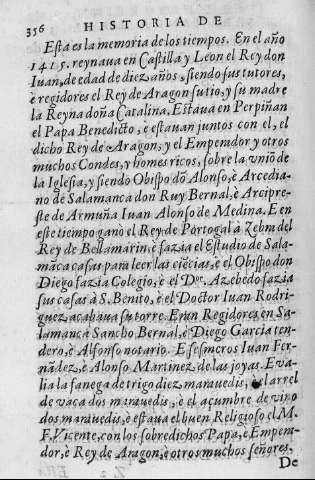 356 HISTORIA DE
Esta es la memoria de los tiempos. En el año
1415. reynaua en Castilla y Leon el Rey don
Iuan, de edad de diez años, siendo sus tutores,
è regidores el Rey de Aragon su tio, y su madre
la Reyna doña Catalina. Estaua en Perpiñan
el Papa Benedicto, è estauan juntos con el, el
dicho Rey de Aragon, y el Emperador y otros
muchos Condes, y homes ricos, sobre la vniõ de
la Iglesia, y siendo Obispo dõ Alonso, è Arcedia-
no de Salamanca don Ruy Bernal, è Arcipre-
ste de Armuña Iuan Alonso de Medina. E en
este tiempo ganò el Rey de Portogal à Zebta del
Rey de Bellamarin, è fazia el Estudio de Sala-
mãca casas para leer las ciẽcias, è el Obispo don
Diego fazia Colegio, è el Dor. Azebedo fazia
sus casas à S. Benito, è el Doctor Iuan Rodri-
guez acabaua su torre. Erãn Regidores en Sa-
lamanca Sancho Bernal, è Diego Garcia ten-
dero, è Alfonso notario. E sesmeros Iuan Fer-
nãdez, è Alonso Martinez de las joyas. E va-
lia la fanega de trigo diez marauedis, è el arrel
de vaca dos marauedis, è el açumbre de vino
dos marauedis, è estaua el buen Religioso el M.
F. Vicente, con los sobredichos Papa, è Empera-
dor, è Rey de Aragon, è otros muchos señores.
De